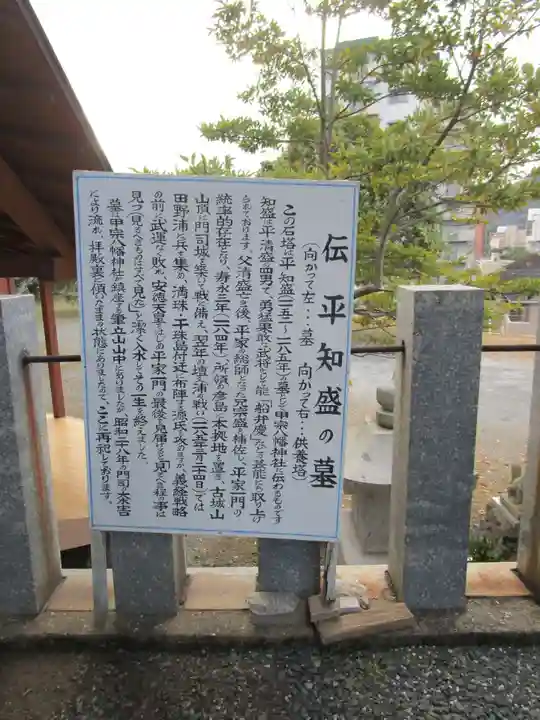 伝 平知盛の墓
(向かって左…墓 向かって右…供養塔)
この石塔は平知盛(一一五二~一一八五年)の墓として甲宗八幡神社に伝わるものです
知盛は平清盛の四男で、勇猛果敢な武将として能「船弁慶」などの芸能にも取り上げ
られております。父清盛亡き後、平家の総師となった兄宗盛を補佐し、平家一門の
統率的存在となり、寿永三年(一一八四年)、所領の彦島に本拠地を置き、古城山
山頂に門司城を築いて戦に備え、翌年の壇之浦の戦い(一一八五年三月二十四日)では
田野浦に兵を集め、満珠・干珠島付近に布陣する源氏を攻めますが、義経戦略
の前に武運なく敗れ、安徳天皇をはじめ平家一門の最後を見届けると「見るべき程の事は
見つ(見るべきものはすべて見た)」と潔く入水してその一生を終えました。
墓は甲宗八幡神社の鎮座する筆立山山中にありましたが、昭和二八年の門司大水害
により流れ、拝殿裏に傾いたままの状態にありましたので、ここに再祀してあります。